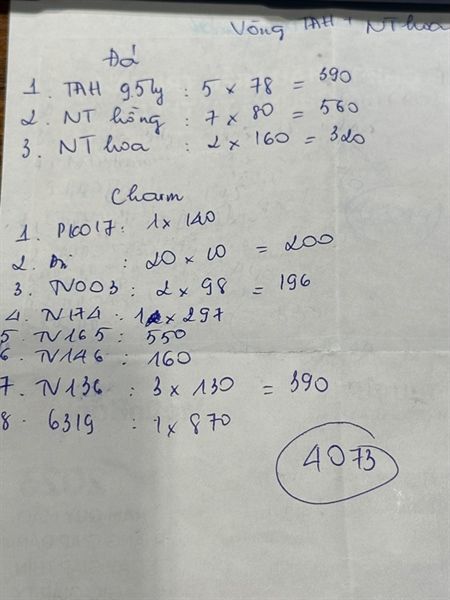 Vòng TAH + NT hoa
Đá
1. TAH 9.5ly : 5 x 78 = 390
2. NT hồng : 7 x 80 = 560
3. NT hoa : 2 x 160 = 320
Charm
1. PK017 : 1 x 140
2. Bi : 20 x 10 = 200
3. TV003 : 2 x 98 = 196
4. TV174 : 1 x 297
5. TV165 : 550
6. TV146 : 160
7. TV136 : 3 x 130 = 390
8. 6319 : 1 x 870
4073